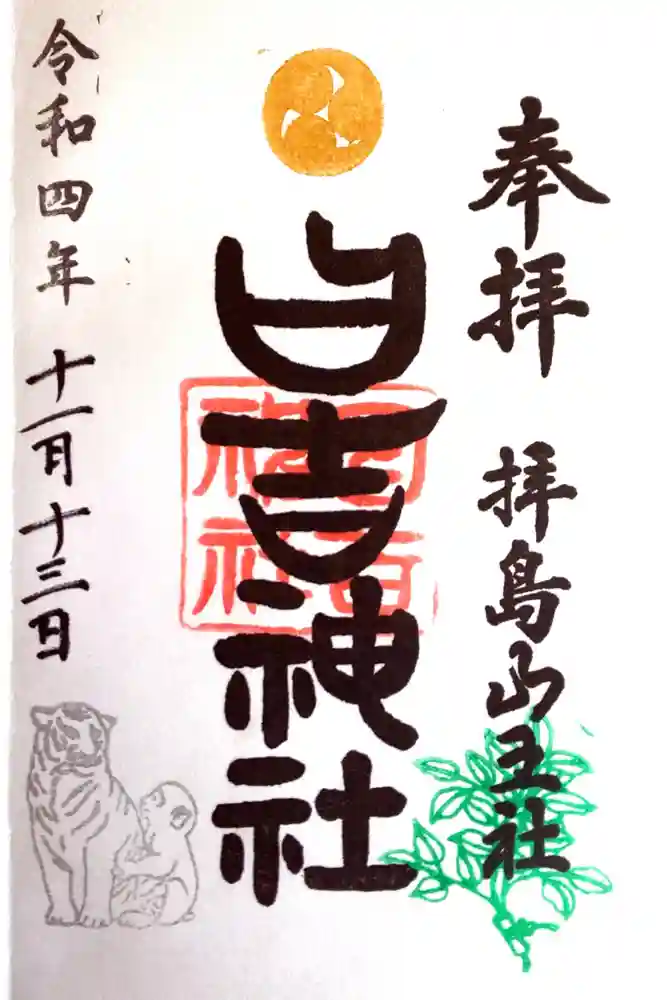 奉拝 拝島山王社
日吉神社
日吉神社
令和四年 十一月十三日